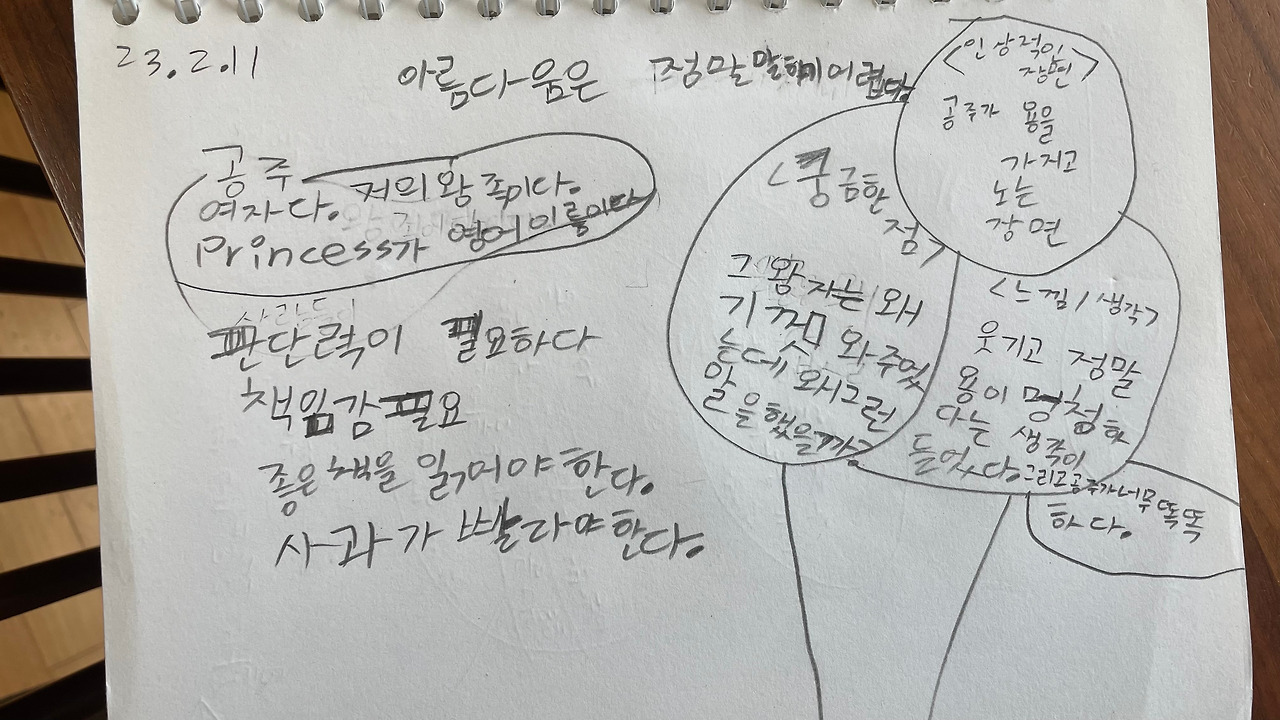 23.2.11
아름다움은 정말 말하기 어렵다.
공주
여자다. 저의 왕족이다.
princess가 영어 이름이다
사람들이
판단력이 필요하다
책임감 필요
좋은 책을 읽어야 한다.
사과가 빨라야 한다.
<인상적인
장면>
공주가 용을
가지고
노는
장면
<궁금한
점>
그 왕자는 왜
기껏 와주었
는데 왜 그런
말을 했을까?
<느낌/생각>
웃기고 정말
용이 멍청하
다는 생각이
들었다. 그리고 공주가 너무 똑똑
하다.